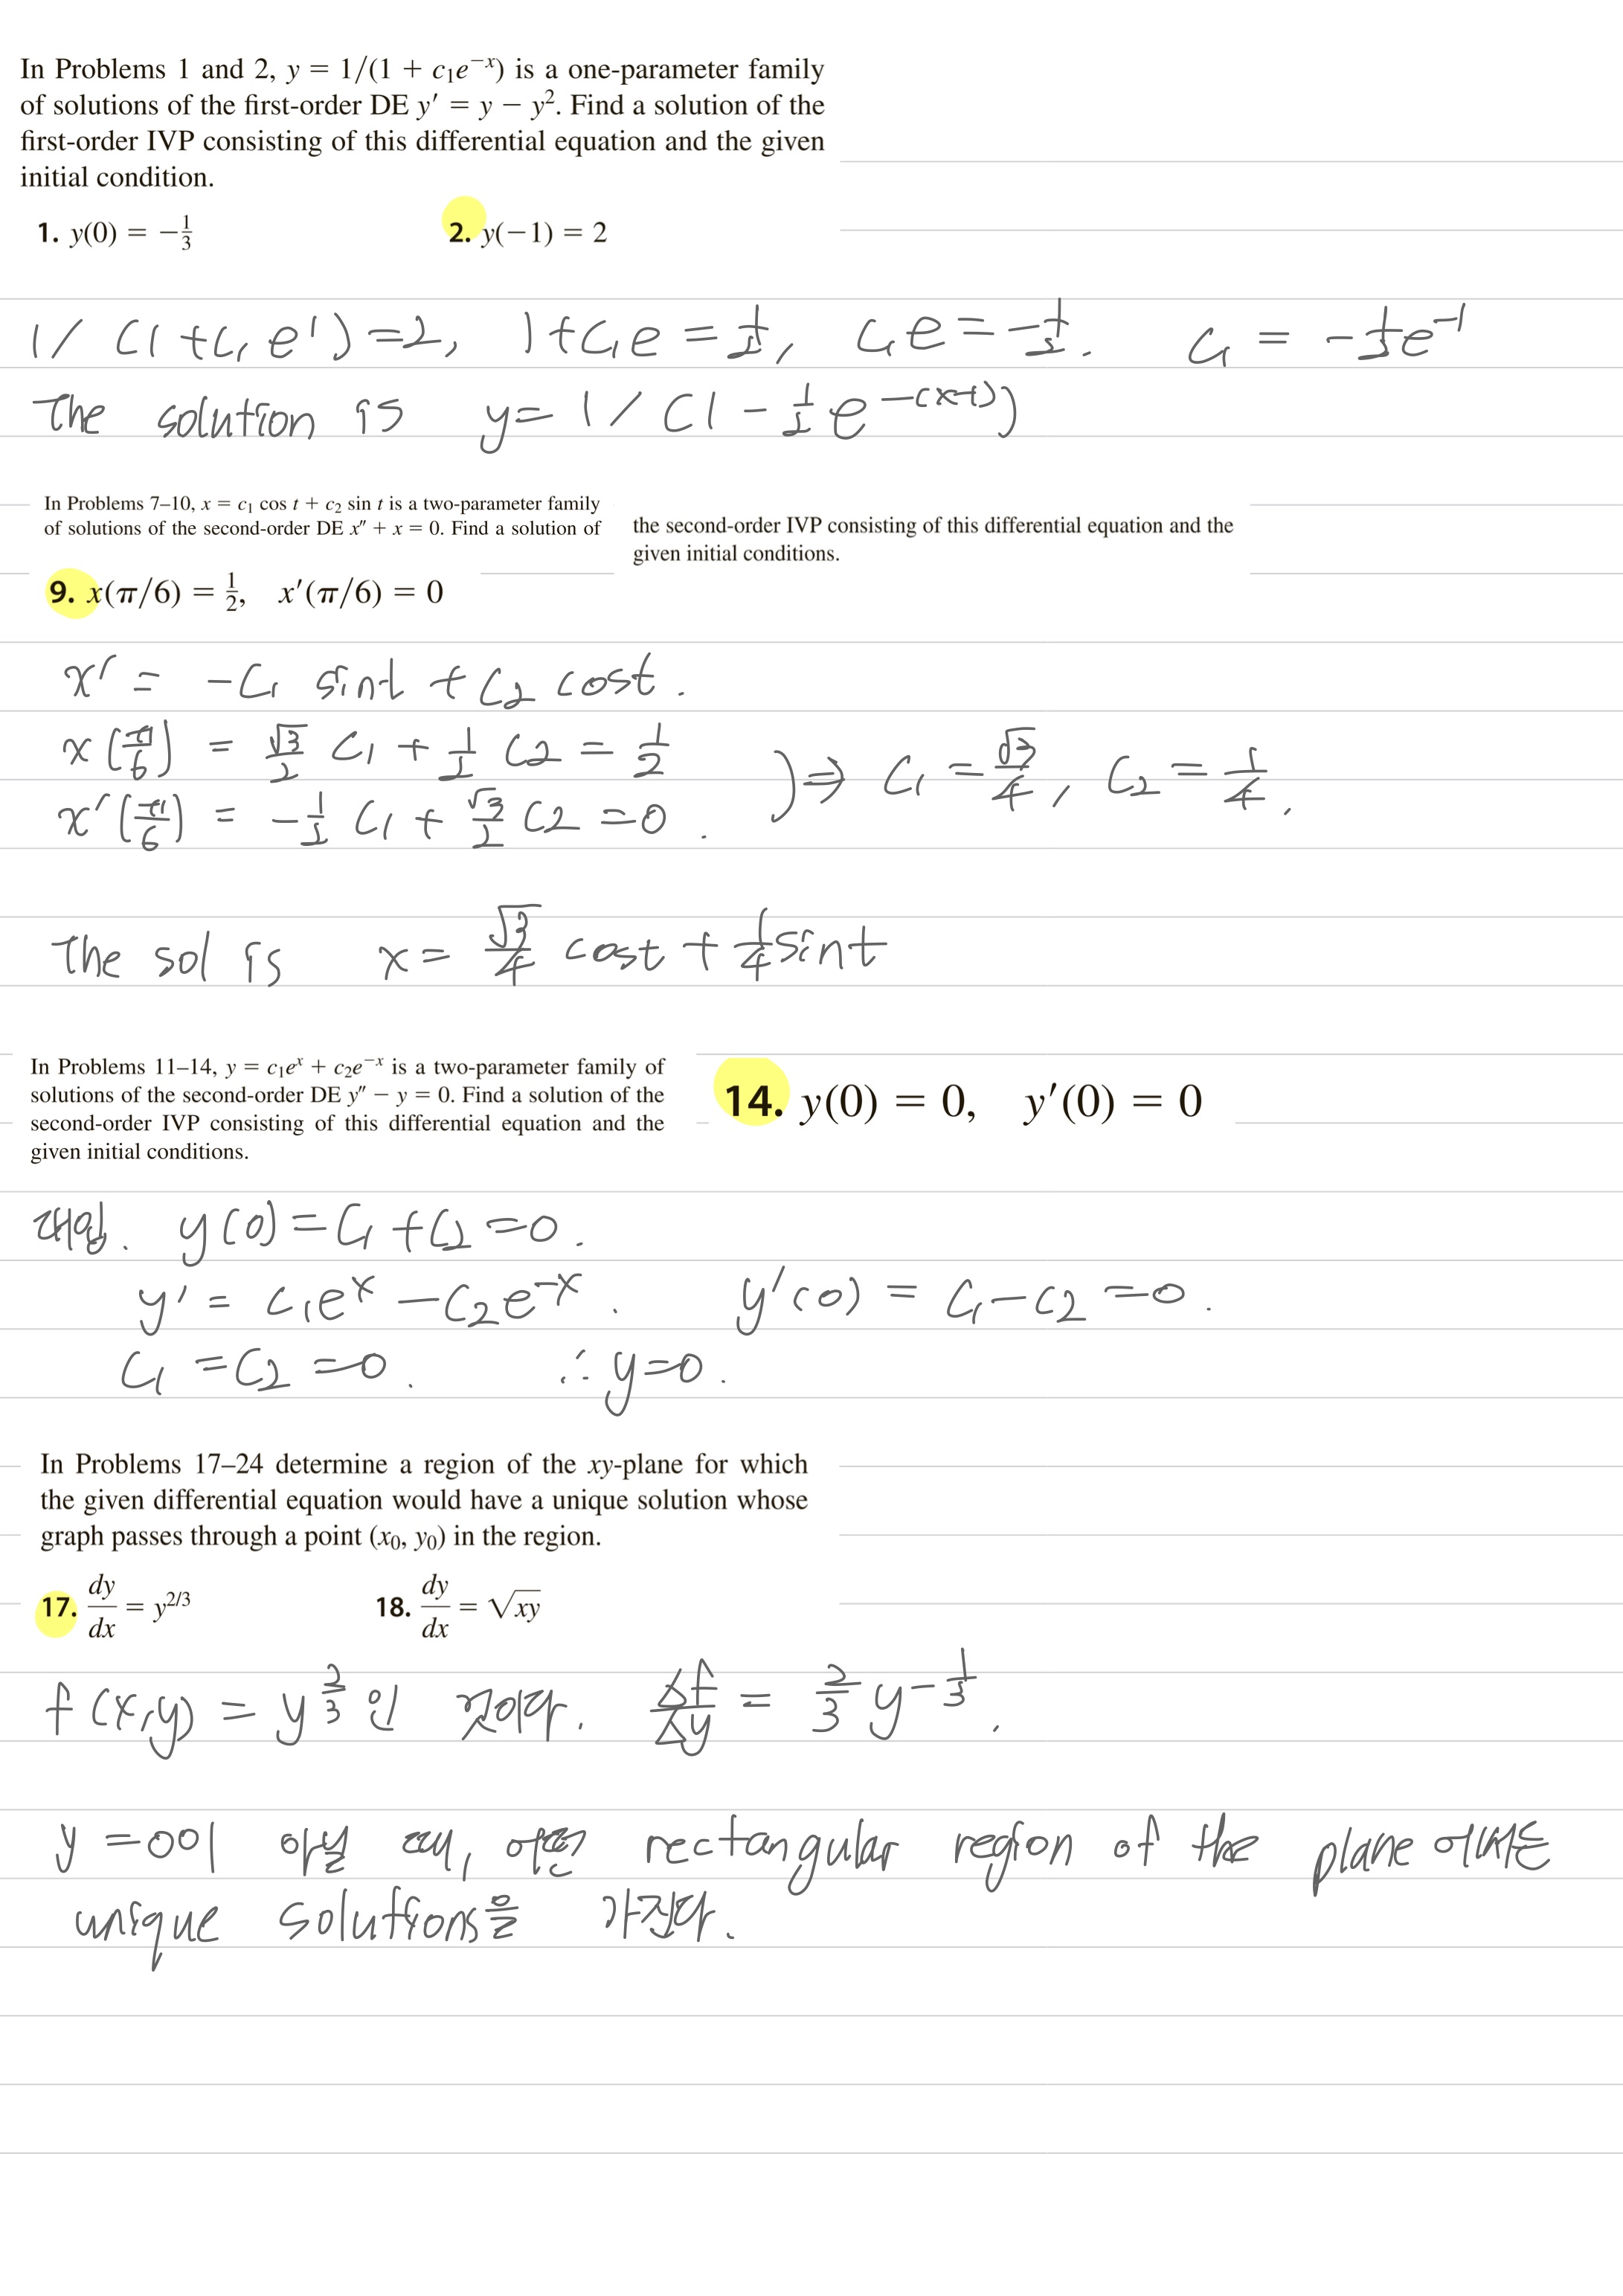 In Problems 1 and 2, y = 1/(1 + c₁e⁻ˣ) is a one-parameter family
of solutions of the first-order DE y′ = y − y². Find a solution of the
first-order IVP consisting of this differential equation and the given
initial condition.
1. y(0) = −1/3 2. y(−1) = 2
1/(1+c₁e¹)=2, 1+c₁e=1/2, c₁e=−1/2. c₁ = −1/2e⁻¹
The solution is y=1/(1−1/2e^−(x+1))
In Problems 7–10, x = c₁ cos t + c₂ sin t is a two-parameter family
of solutions of the second-order DE x″ + x = 0. Find a solution of
the second-order IVP consisting of this differential equation and the
given initial conditions.
9. x(π/6) = 1/2, x′(π/6) = 0
x′ = −c₁ sint + c₂ cost.
x(π/6) = √3/2 c₁ + 1/2 c₂ = 1/2
x′(π/6) = −1/2 c₁ + √3/2 c₂ = 0.
) ⇒ c₁ = √3/4, c₂ = 1/4.
The sol is x= √3/4 cost + 1/4 sint
In Problems 11–14, y = c₁eˣ + c₂e⁻ˣ is a two-parameter family of
solutions of the second-order DE y″ − y = 0. Find a solution of the
second-order IVP consisting of this differential equation and the
given initial conditions.
14. y(0) = 0, y′(0) = 0
대입. y(0)=c₁+c₂=0.
y′ = c₁eˣ−c₂e⁻ˣ. y′(0) = c₁−c₂=0.
c₁=c₂=0. ∴ y=0.
In Problems 17–24 determine a region of the xy-plane for which
the given differential equation would have a unique solution whose
graph passes through a point (x₀, y₀) in the region.
17. dy/dx = y^2/3 18. dy/dx = √xy
f(x,y) = y^2/3 인 것이다. Δf/Δy = 2/3 y^−1/3.
y=0이 아닐 때, 어떤 rectangular region of the plane 이내든
unique solutions을 가진다.